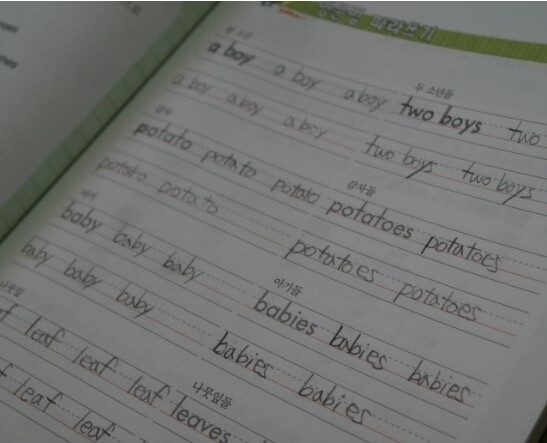 따라쓰기
한 소년 두 소년들
a boy a boy a boy two boys two
a boy a boy a boy two boys two boys
감자 감자들
potato potato potato potatoes potatoes
potato potato potatoes potatoes
아기 아기들
baby baby baby babies babies babies
baby baby baby babies babies
나뭇잎들
leaf leaf leaf leaves
leaf leaf